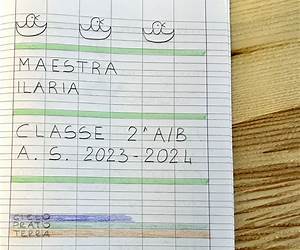 MAESTRA
ILARIA
CLASSE 2^A/B
A. S. 2023-2024
CIELO
PRATO
TERRA